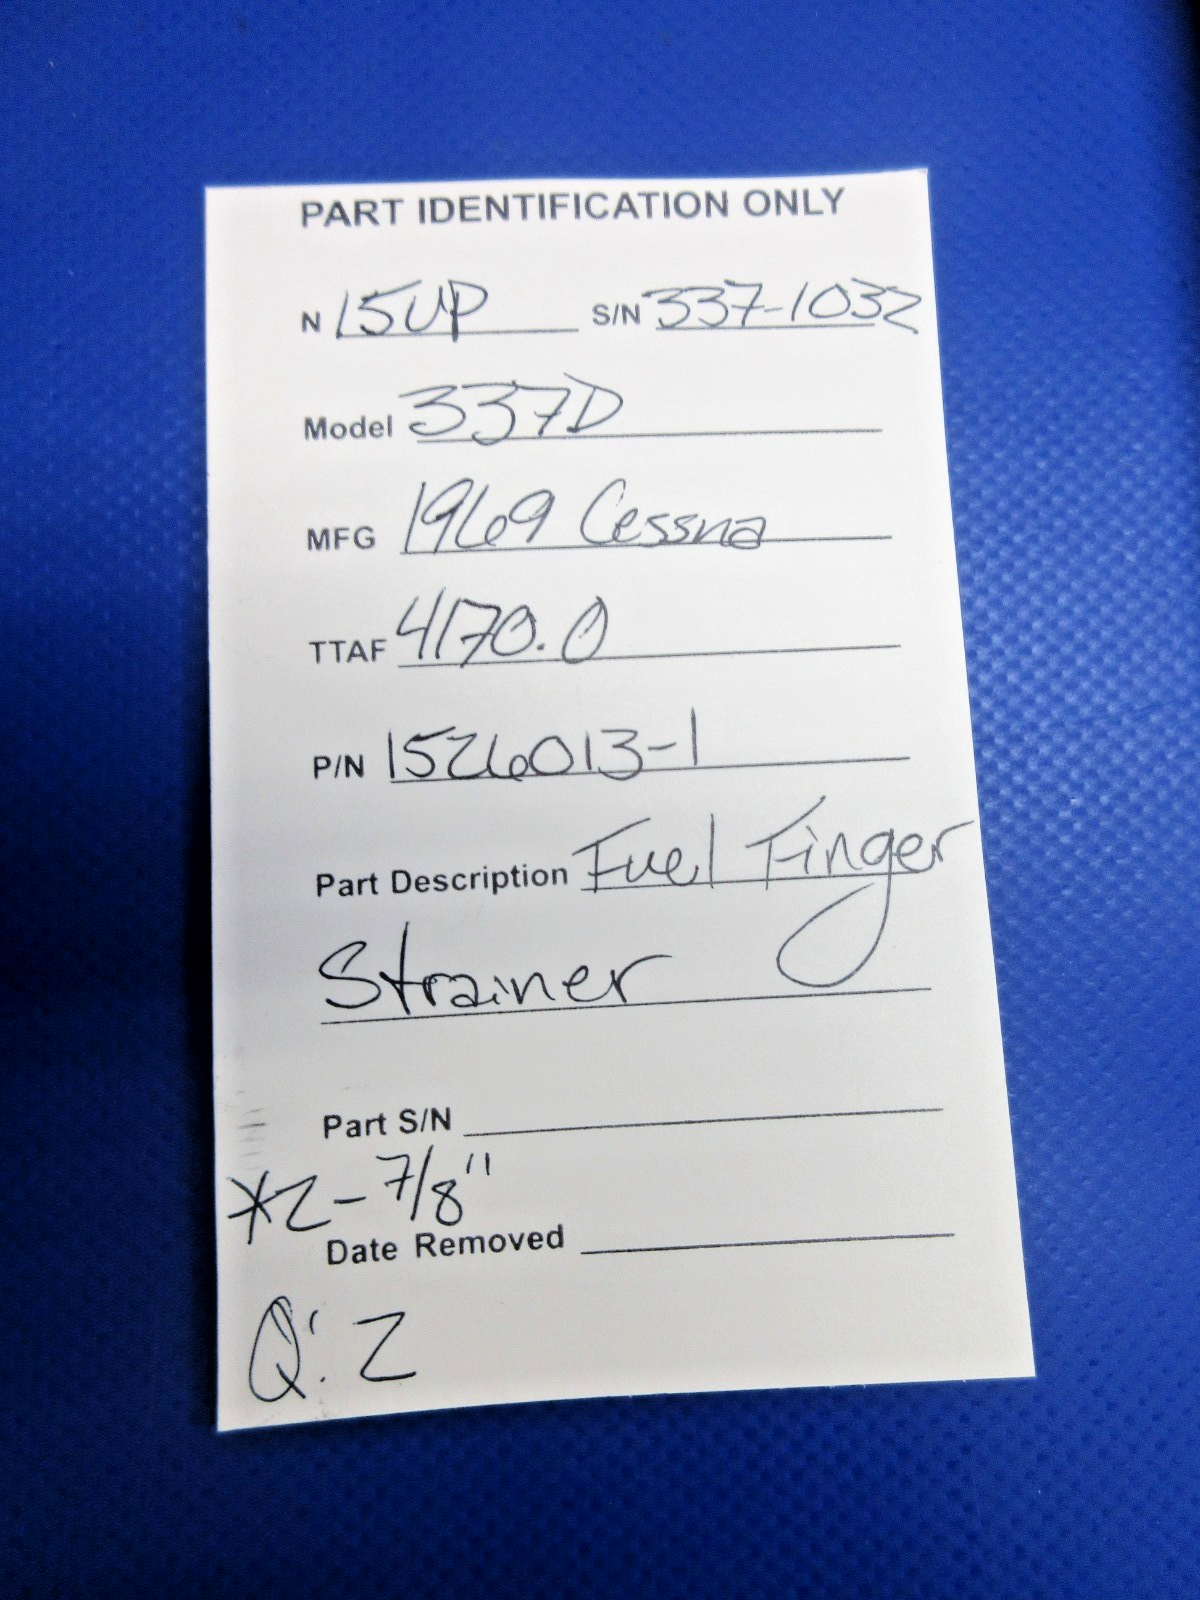 PART IDENTIFICATION ONLY
N 15UP S/N 337-1032
Model 337D
MFG 1969 Cessna
TTAF 4170.0
P/N 1526013-1
Part Description Fuel Finger
Strainer
Part S/N
*2-7/8"
Date Removed
Q: 2